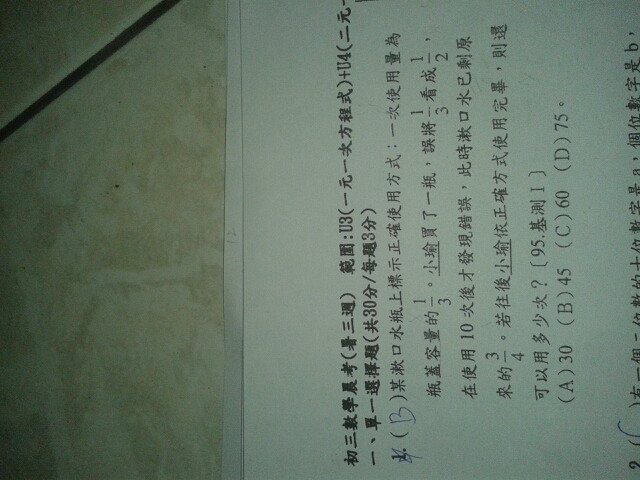 初三數學晨考(暑三週) 範圍:U3(一元一次方程式)+U4(二元一
一、單一選擇題(共30分/每題3分)
(B)某漱口水瓶上標示正確使用方式：一次使用量為
瓶蓋容量的1/3。小瑜買了一瓶，誤將1/3看成1/2，
在使用10次後才發現錯誤，此時漱口水已剩原
來的3/4。若往後小瑜依正確方式使用完畢，則還
可以用多少次？〔95.基測I〕
(A)30 (B)45 (C)60 (D)75。
)有一個二位數的十位數字是a，個位數字是b，